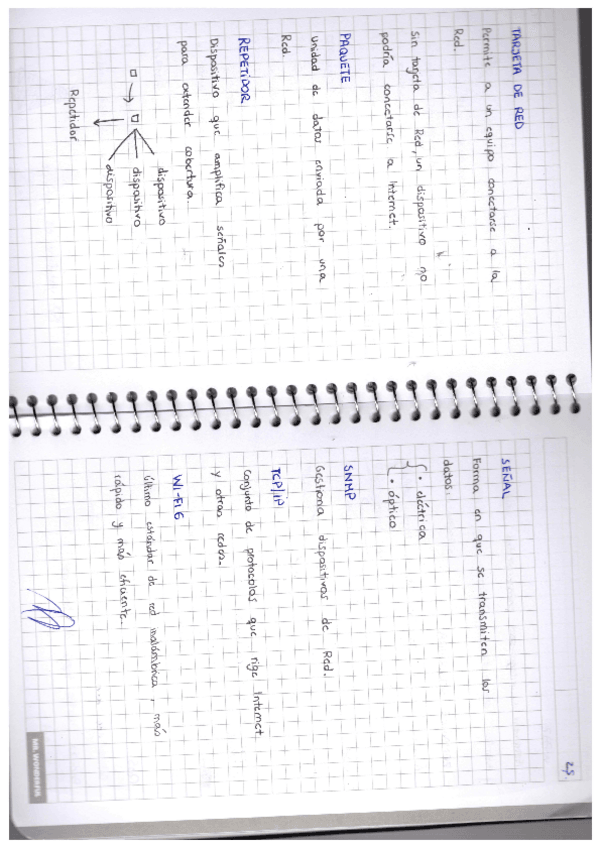 TARJETA DE RED
Permite a un equipo conectarse a la
Red.
Sin tarjeta de Red, un dispositivo no
podría conectarse a Internet.
PAQUETE
Unidad de datos enviada por una
Red.
REPETIDOR
Dispositivo que amplifica señales
para extender cobertura.
dispositivo
dispositivo
dispositivo
Repetidor
25
SEÑAL
Forma en que se transmiten los
datos
• eléctrica
• óptica
SNMP
Gestiona dispositivos de Red.
TCP/IP
Conjunto de protocolos que rige Internet
y otras redes.
WI-FI 6
Último estándar de red inalámbrica, más
rápido y más eficiente.
MR. WONDERFUL